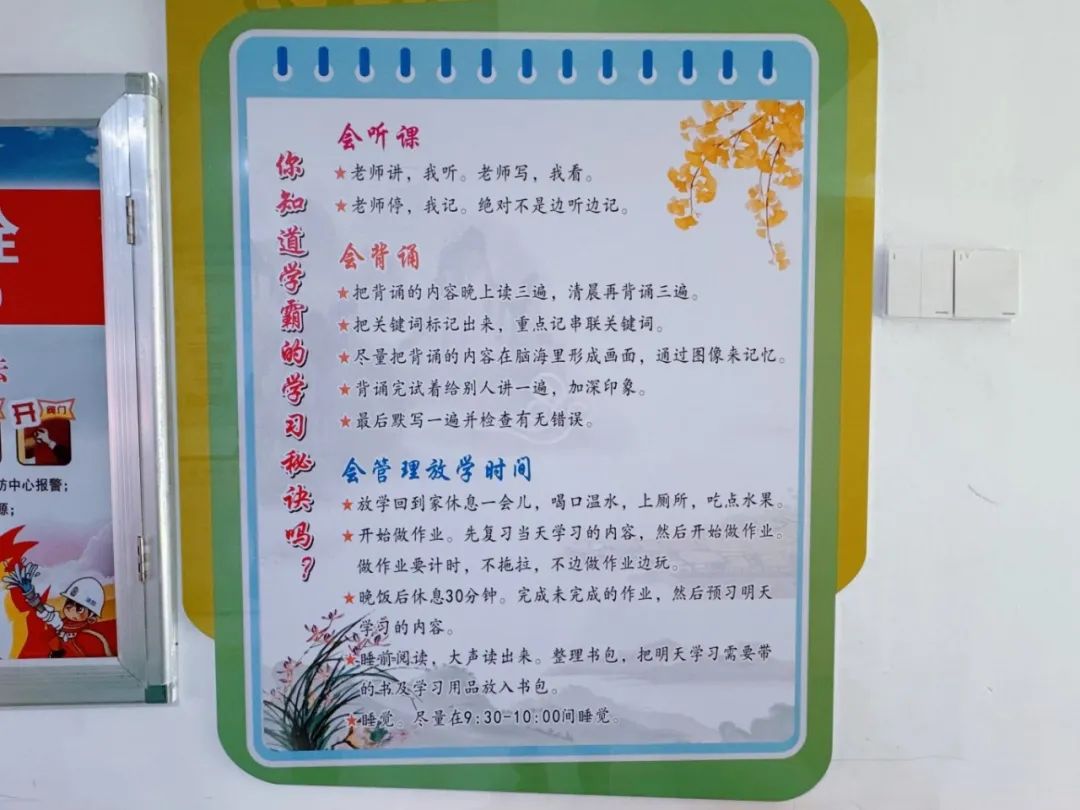 你知道学霸的学习秘诀吗?
会听课
★老师讲，我听。老师写，我看。
★老师停，我记。绝对不是边听边记。
会背诵
★把背诵的内容晚上读三遍，清晨再背诵三遍。
★把关键词标记出来，重点记串联关键词。
★尽量把背诵的内容在脑海里形成画面，通过图像来记忆。
★背诵完试着给别人讲一遍，加深印象。
★最后默写一遍并检查有无错误。
会管理放学时间
★放学回到家休息一会儿，喝口温水，上厕所，吃点水果。
★开始做作业。先复习当天学习的内容，然后开始做作业。
做作业要计时，不拖拉，不边做作业边玩。
★晚饭后休息30分钟。完成未完成的作业，然后预习明天
学习的内容。
★睡前阅读，大声读出来。整理书包，把明天学习需要带
的书及学习用品放入书包。
★睡觉。尽量在9:30-10:00间睡觉。
全
开
阀门
防中心报警；
源；